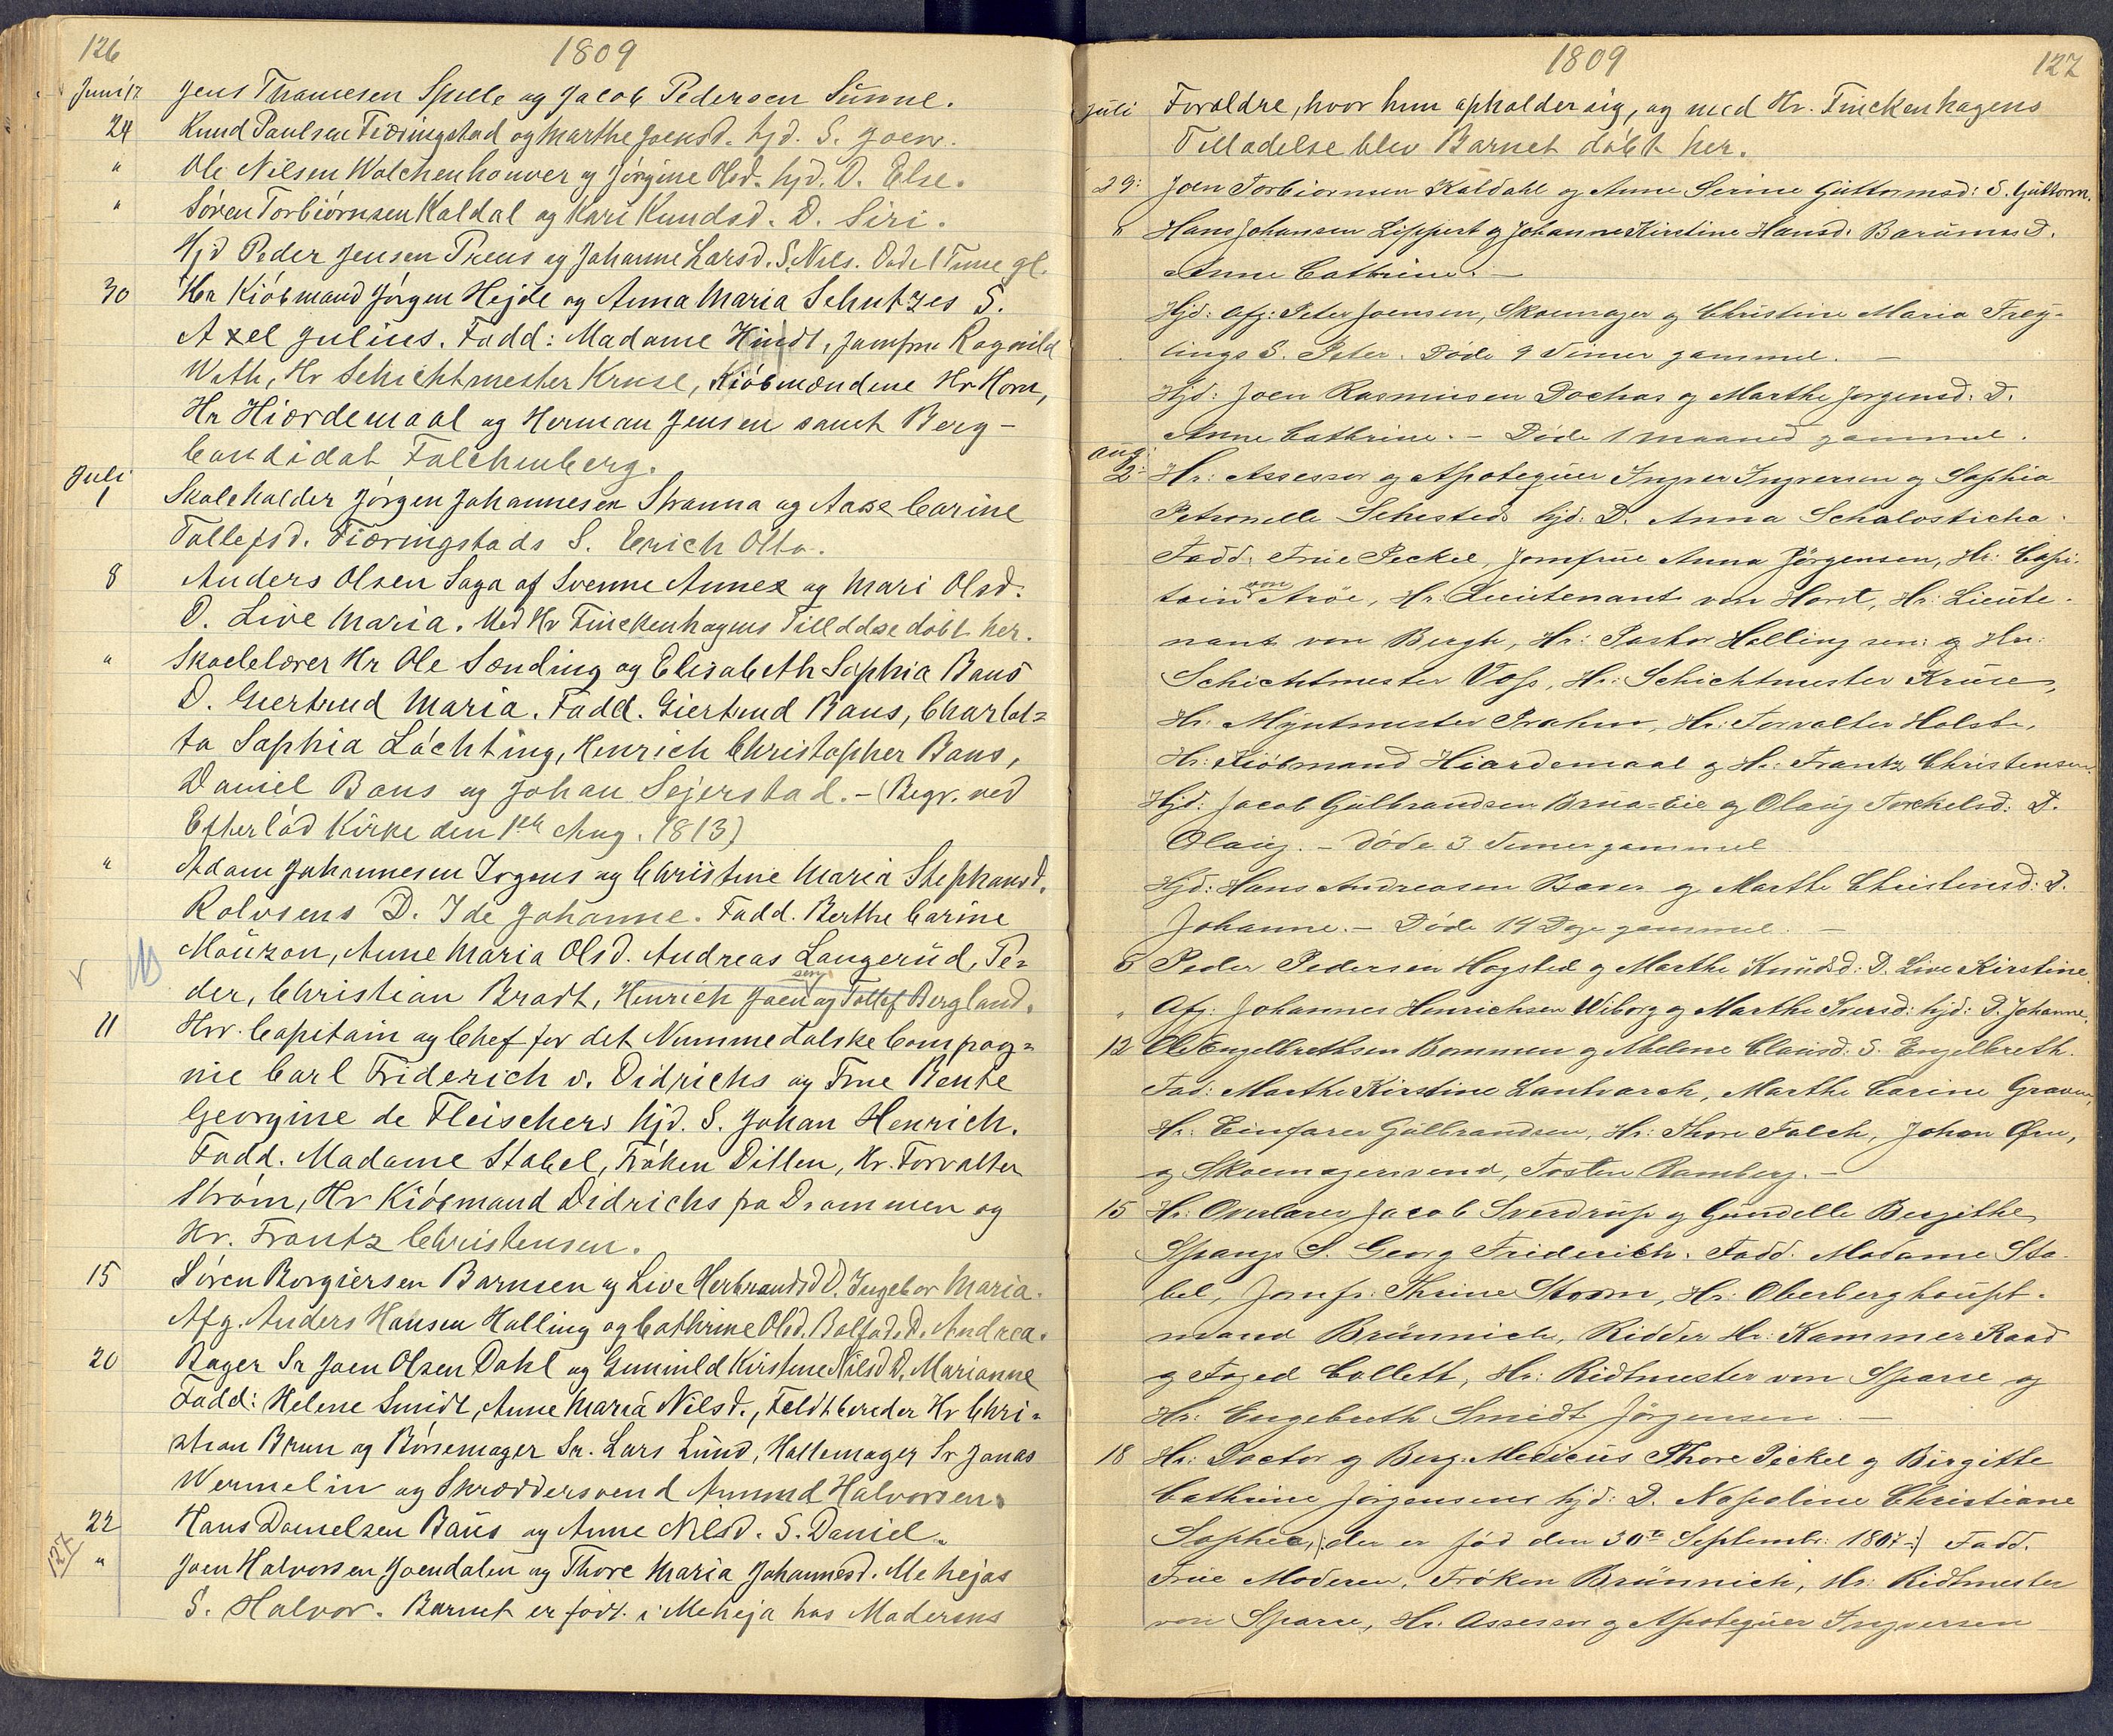 126
1809
Juni 17 Jens Thomesen Spelle og Jacob Pedersen Sünne.
24 Knud Paulsen Fiæringstad og Marthe Joensd. hjd. S. Joen.
" Ole Nilsen Walchenhouver og Jørgine Olsd. hjd. D. Else.
" Søren Torbiørnsen Kaldal og Kari Knudsd. D. Siri.
Hjd Peder Jensen Preus og Johanne Larsd. S. Nils. Død 1 Time gl.
30 Hr Kiøbmand Jørgen Hejde og Anna Maria Schutzes S.
Axel Julius. Fadd: Madame Hindt, Jomfru Ragnild
With, Hr Schichtmester Kruse, Kiøbmændene Hr Horn,
Hr Hiordemaal og Herman Jensen samt Berg-
Candidat Falchenberg.
Juli
1 Skoleholder Jørgen Johannesen Stranna og Aase Carine
Tollefsd. Fiæringstads S. Erich Otto.
8 Anders Olsen Saga af Svenne Annex og Mari Olsd.
D. Live Maria. Med Hr Finckenhagens Tilladse døbt her.
" Skoelelærer Hr Ole Sænding og Elisabeth Sophia Baus
D. Giertrud Maria. Fadd. Giertrud Baus, Charlot=
ta Sophia Lochting, Henrich Christopher Baus,
Daniel Baus og Johan Sejerstad. - (Begr. ved
Efterlød Kirke den 1ste Aug. 1813)
" Adam Johannesen Irgens og Christine Maria Stephansd.
Rolvsens D. Ide Johanne. Fadd. Berthe Carine
Mouzon, Anne Maria Olsd. Andreas Langerüd, Pe=
der, Christian Bradt, Henrich Joensen og Tollef Bergland.
11 Hrr. Capitain og Chef for det Nummedalske Compag=
nie Carl Friderich v. Didrichs og Frue Bente
Georgine de Fleischers hjd. S. Johan Henrich.
Fadd. Madame Stabel, Frøken Ditten, Hr. Forvalter
Strøm, Hr Kiøbmand Didrichs fra Drammen og
Hr. Frantz Christensen.
15 Søren Borgiersen Barnsen og Live Herbrandsd D. Ingebor Maria.
Afg. Anders Hansen Halling og Cathrine Olsd. D. Andrea.
20 Bager Sr Joen Olsen Dahl og Gunnild Kirstine Nilsd D. Marianne
Fadd: Helene Smidt, Anne Maria Nilsd., Feldtbereder Hr Chri=
stian Brun og Børsemager Sr. Lars Lund, Hattemager Sr Jonas
Wermelin og Skræddersvend Amund Halvorsen.
22 Hans Danielsen Baus og Anne Nilsd. S. Daniel.
127 " Joen Halvorsen Joendalen og Thore Maria Johannesd. Mehejas
S. Halvor. Barnet er født i Meheja hos Moderens
1809
127
Juli Forældre, hvor hun opholder sig, og med Hr. Finckenhagens
Tilladelse blev Barnet døbt her.
29: Joen Torbiørnsen Kaldahl og Anne Serine Guttormsd: S. Guttorm.
" Hans Johansen Lippert og Johanne Kirstine Hansd. Barums D.
Anne Cathrine. -
Hjd: afg: Peter Joensen, Skoemager og Christine Maria Frey-
tings S. Peter. Døde 9 Timer gammel. -
Hjd: Joen Rasmusen Dochas og Marthe Jørgensd. D.
Anne Cathrine. - Døde 1 maaned gammel.
Aug:
2: Hr: Assessor og Apotequer Ingver Ingversen og Sophia
Petronelle Schesteds hjd. D. Anna Schalosticha.
Fadd: Frue Peckel, Jomfrue Anna Jörgensen, Hr: Capi-
tain von Arøe, Hr: Lieutenant von Horst, Hr: Lieute-
nant von Bergh, Hr: Pastor Holling sen: og Hr:
Schichtmester Voss, Hr: Schichtmester Kruse,
Hr: Myntmester Prahm, Hr: Forvalter Holst,
Hr: Kiöbmand Hiardemaal og Hr: Frantz Christensen.
Hjd: Jacob Gulbrandsen Brua-Eie og Olaug Torkelsd: D.
Olaug. - døde 3 Timer gammel
Hjd: Hans Andreasen og Marthe Christensd: D.
Johanne. - Døde 14 Dage gammel. -
6 Peder Pedersen Hogsted og Marthe Knudsd: D. Live Kirstine.
" Afg: Johannes Henrichsen Wiborg og Marthe Iversd: hjd: D. Johanne.
12 Ole Engelbrethsen Bommen og Malene Clausd: S. Engelbreth.
Fad: Marthe Kirstine Lantvarch, Marthe Carine Graven,
Hr: Einfarer Gulbrandsen, Hr: Thore Falch, Johan
og Skoemagersvend, Tosten Ramberg. -
15 Hr: Overlærer Jacob Sverdrup og Gundelle Bergithe
Spangs S. Georg Friderich. Fadd. Madame Sta-
bel, Jomfr: Thrine Storm, Hr: Oberberghaupt-
mand Brünnich, Ridder Hr: Kammer Raad
og Foged Collett, Hr: Ridtmester von Sparre og
Hr: Engebreth Smidt Jörgensen. -
18 Hr: Doctor og Berg-Medicus Thore Peckel og Birgitte
Cathrine Jörgensens hjd: D. Napoline Christiane
Sophia, |: der er fød den 30te Septembr: 1807 :| Fadd.
Frue Moderen, Frøken Brünnich, Hr: Ridtmester
von Sparre, Hr. Assessor og Apotequer Ingversen